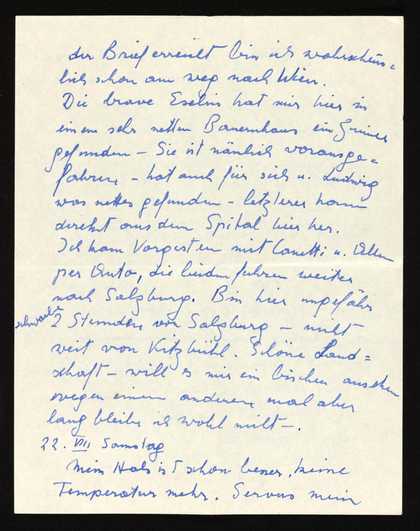 der Brief erreicht bin ich wahrschein=
lich schon am weg nach Wien.
Die brave Eselin hat mir hier in
einem sehr netten Bauernhaus ein Zimmer
gefunden – Sie ist nämlich vorausge=
fahren – hat auch für sich u. Ludwig
was nettes gefunden – letzterer kam
direkt aus dem Spital hier her.
Ich kam Vorgestern mit Canetti u.
per Auto, die beiden fuhren weiter
nach Salzburg. Bin hier ungefähr
schwach
2 Stunden von Salzburg – nicht
weit von Kitzbühl. Schöne Land=
schaft – will es mir ein bischen ansehen
wegen einem anderen mal aber
lang bleibe ich wohl nicht –.
22. VIII Samstag
Mein Hals ist schon besser, keine
Temperatur mehr. Servus mein